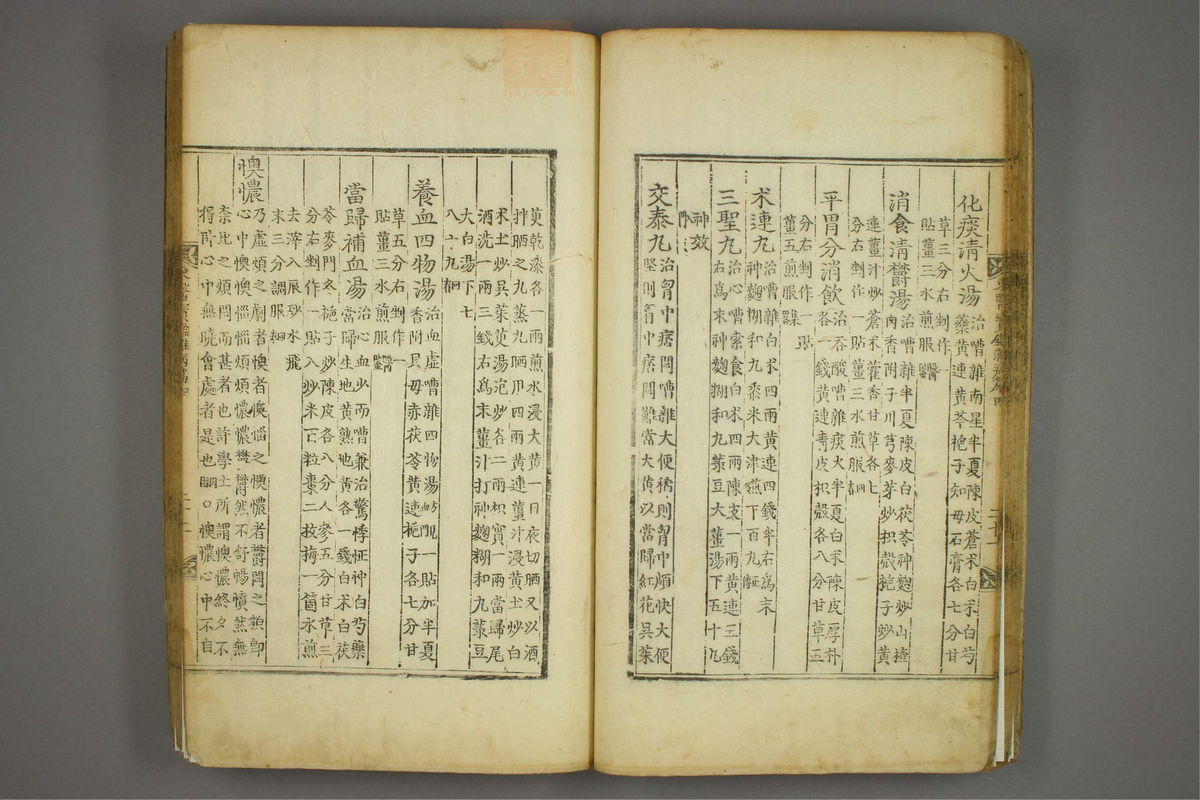 化痰清火湯治嘈雜南星半夏陳皮蒼朮白朮白芍
藥黃連黃芩梔子知母石膏各七分甘
草三分右剉作一
貼薑三水煎服醫鑑
消食清鬱湯治嘈雜半夏陳皮白茯苓神麴炒山楂
肉香附子川芎麥芽炒枳殼梔子炒黃
連薑汁炒蒼朮藿香甘草各七
分右剉作一貼薑三水煎服回春
平胃分消飲治吞酸嘈雜痰火半夏白朮陳皮厚朴
各一錢黃連靑皮枳殼各八分甘草五
分右剉作一貼
薑五煎服
朮連丸治嘈雜白朮四兩黃連四錢半右爲末
神麴糊和丸黍米大津嚥下百丸
三聖丸治心嘈索食白朮四兩陳皮一兩黃連五錢
右爲末神麴糊和丸菉豆大薑湯下五十丸
神效
交泰丸治胷中痞悶嘈雜大便稀則胷中頗快大便
堅則胷中痞悶難當大黃以當歸紅花吳茱
萸乾漆各一兩煎水浸大黃一日夜切晒又以酒
拌晒之九蒸九晒用四兩黃連薑汁浸黃土炒白
朮土炒吳茱萸湯泡炒各二兩枳實一兩當歸尾
酒洗一兩三錢右爲末薑汁打神麴糊和丸菉豆
大白湯下七
八十丸回春
養血四物湯治血虛嘈雜四物湯一貼加半夏
香附貝母赤茯苓黃連梔子各七分甘
草五分右剉作一
貼薑三水煎服醫鑑
當歸補血湯治心血少而嘈兼治驚悸怔忡白芍藥
當歸生地黃熟地黃各一錢白朮白茯
苓麥門冬梔子炒陳皮各八分人參五分甘草三
分右剉作一貼入炒米百粒棗二枚梅一箇水煎
去滓入辰砂水飛
末三分調服回春
懊憹乃虛煩之劇者懊者懊惱之懊憹者鬱悶之貌卽
心中懊懊惱惱煩煩憹憹鬱鬱然不舒暢憒然無
柰比之煩悶而甚者也許學士所謂懊憹終夕不
得臥心中無曉會處者是也綱目○懊憹心中不自